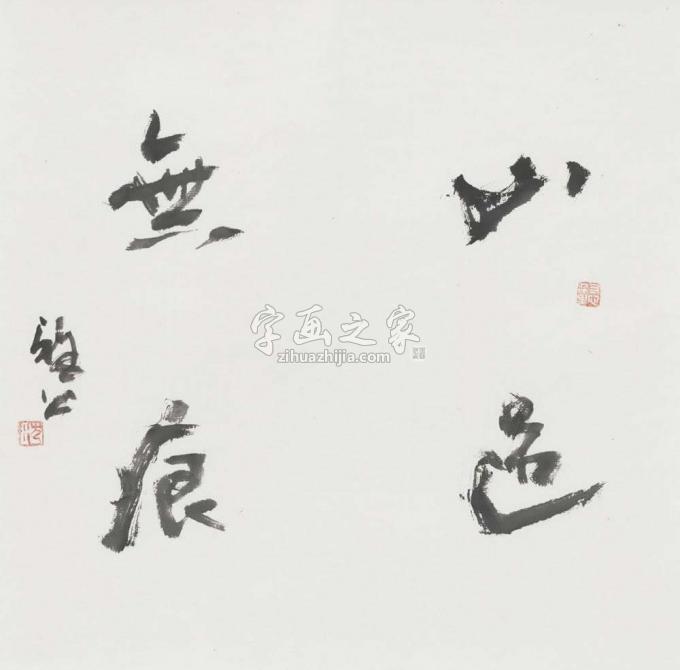 山色
無痕
字画之家
zihuazhijia.com